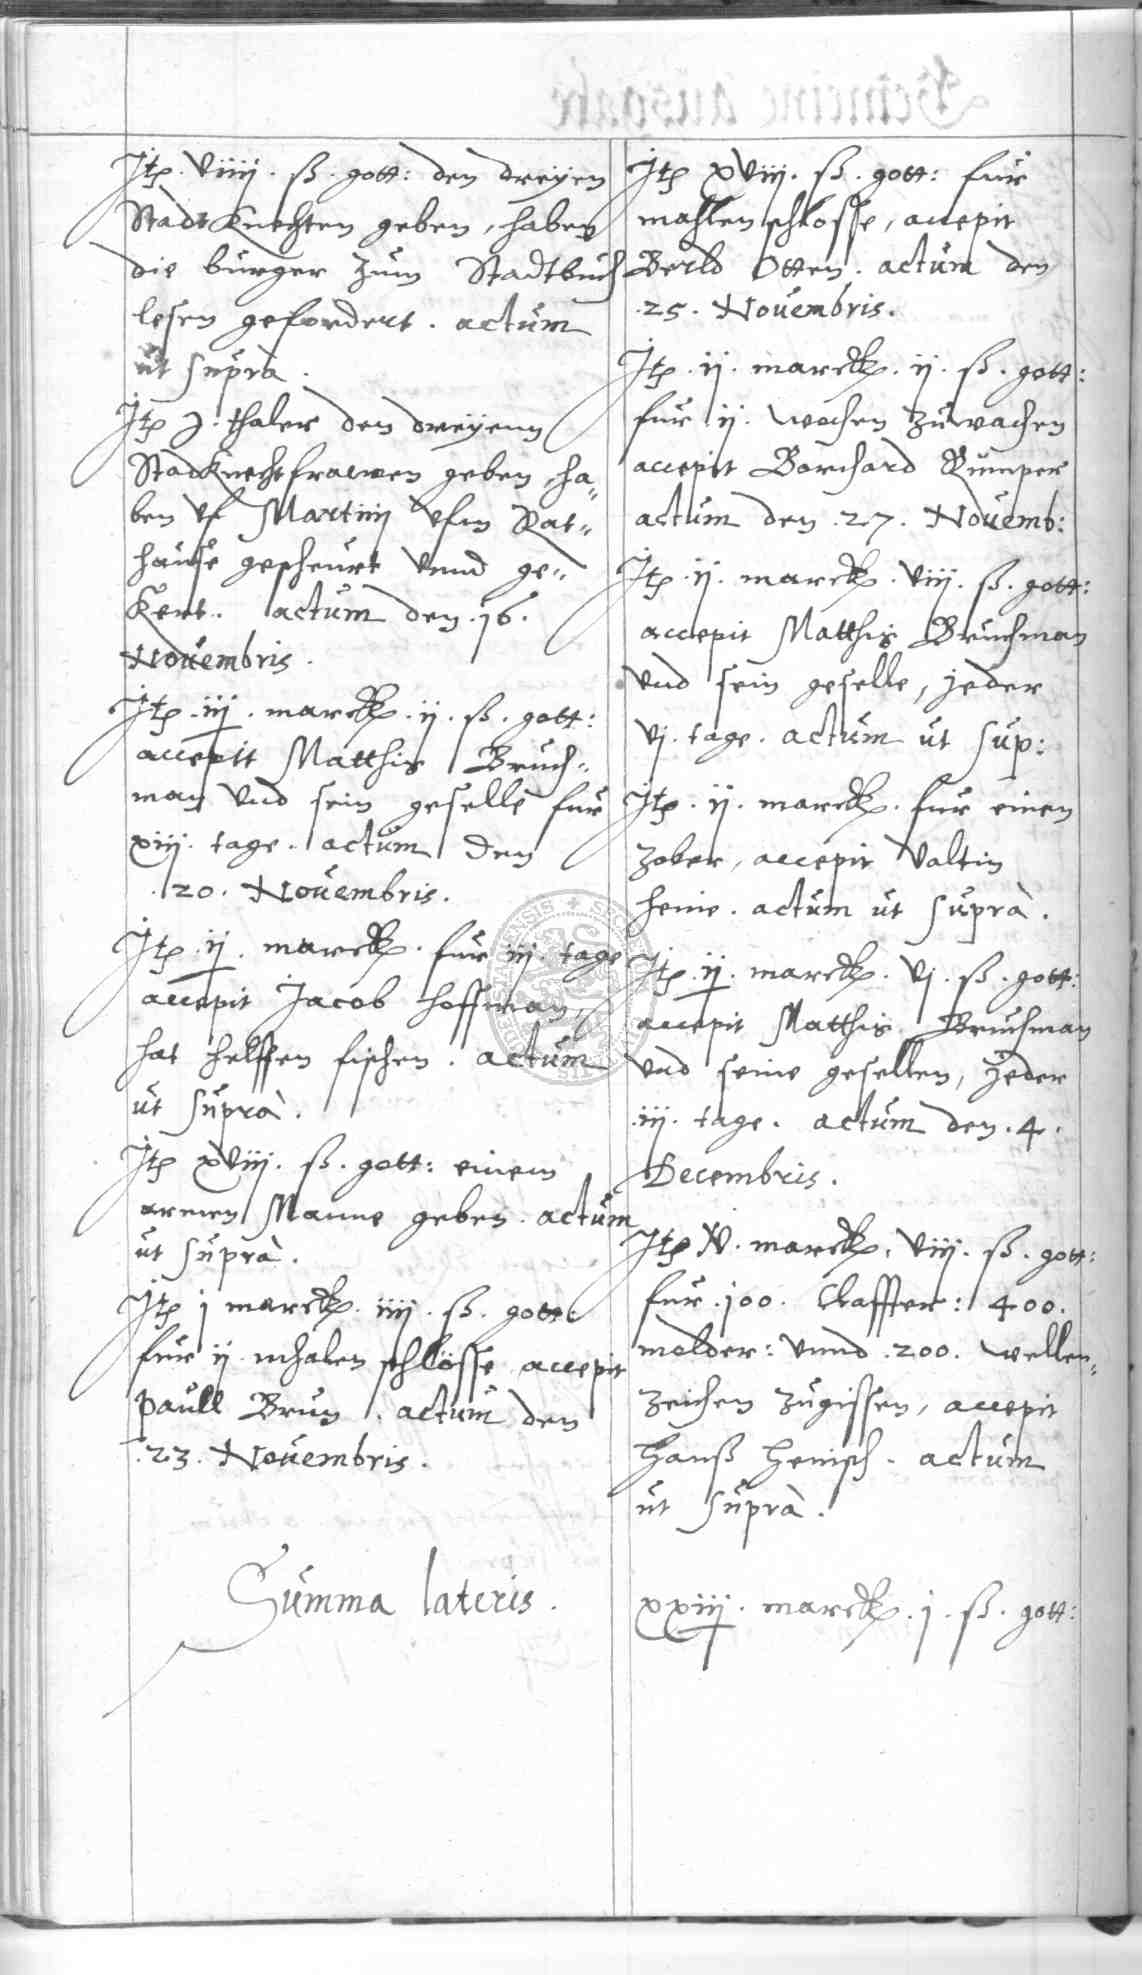 Jtē. viiij. ß. gott: den dreÿen
Stadt Knechten geben, haben
die burger zum Stadtbuch
lesen gefordert. actum
ut suprà.
Jtē j. thaler den dreÿenn
Stadknechtfrawen geben, ha„
ben vf Martinj vfm Rat„
hause gescheurt vnnd ge„
kert. actum den 16.
Nouembris.
Jtē iij. marck. ij. ß. gott:
accepit Matthis Bruch„
man vnd sein geselle fur
xiij. tage. actum den
.20. Nouembris.
Jtē ij. marck. fur iij. tage
accepit Jacob Hoffman,
hat helffen fischen. actum
ut suprà.
Jtē xviij. ß. gott: einem
armen Manne geben. actum
ut suprà.
Jtē j marck. iiij. ß. gott:
fur ij mhalen schlösse accepit
Paull Brun. actum den
.23. Nouembris.
Jtē xviij. ß. gott: fur
mahlenschlosse, accepit
Berld Otten. actum den
.25. Nouembris.
Jtē. ij. marck. ij. ß. gott:
fur ij. wochen zuwachen
accepit Borchard Rumper
actum den .27. Nouemb:
Jtē. ij. marck. viij. ß. gott:
accepit Matthis Bruchman
vnd sein geselle, jeder
vj. tage. actum ut sup:
Jtē. ij. marck. fur einen
zober, accepit Valtin
Heine. actum ut suprà.
Jtē. ij. marck. vj. ß. gott:
accepit Matthis Bruchman
vnd seine gesellen, jeder
.iij. tage. actum den .4.
Decembris.
Jtē iv. marck. viij. ß. gott:
fur .100. Claffter: 400.
molder: vnnd .200. wellen„
zeichen zugissen, accepit
Hanß Henisch. actum
ut suprà.
Summa lateris.
xxiij. marck. j. ß. gott: